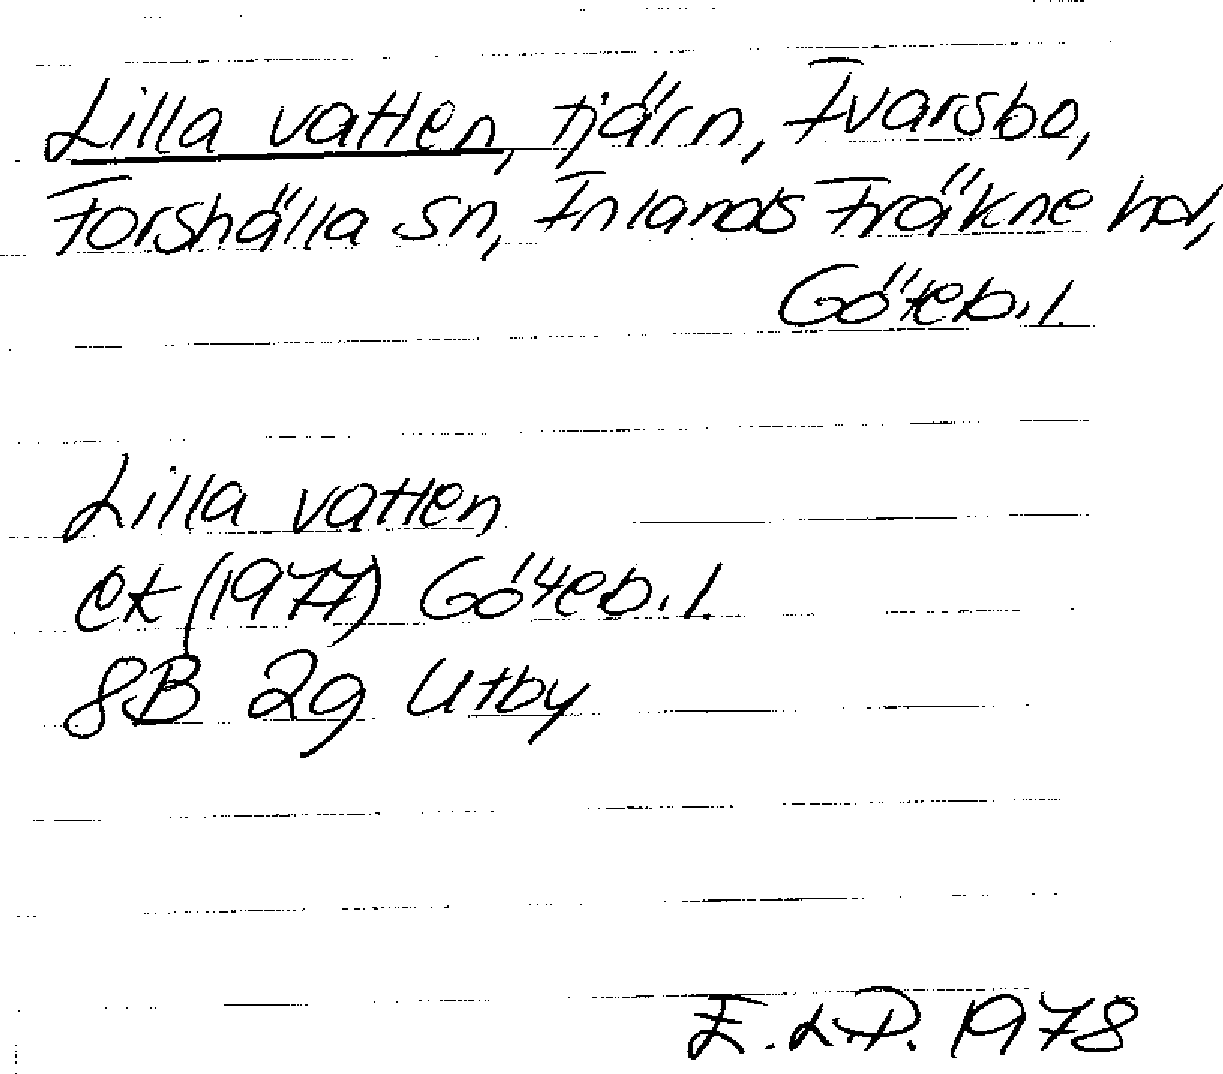 Lilla vatten, tjärn, Ivarsbo,
Forshälla sn, Inlands Fräkne hd,
Göteb.l.
Lilla vatten
ek (1977) Göteb.l.
8B 2g Utby
E.LP. 1978